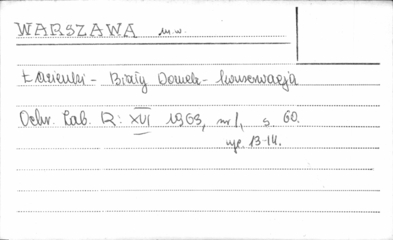 WARSZAWA m.w.
Łazienki - Biały Domek - konserwacja
Ochr. Zab. R: XVI 1963, nr 1, s. 60.
ryc. 13-14.